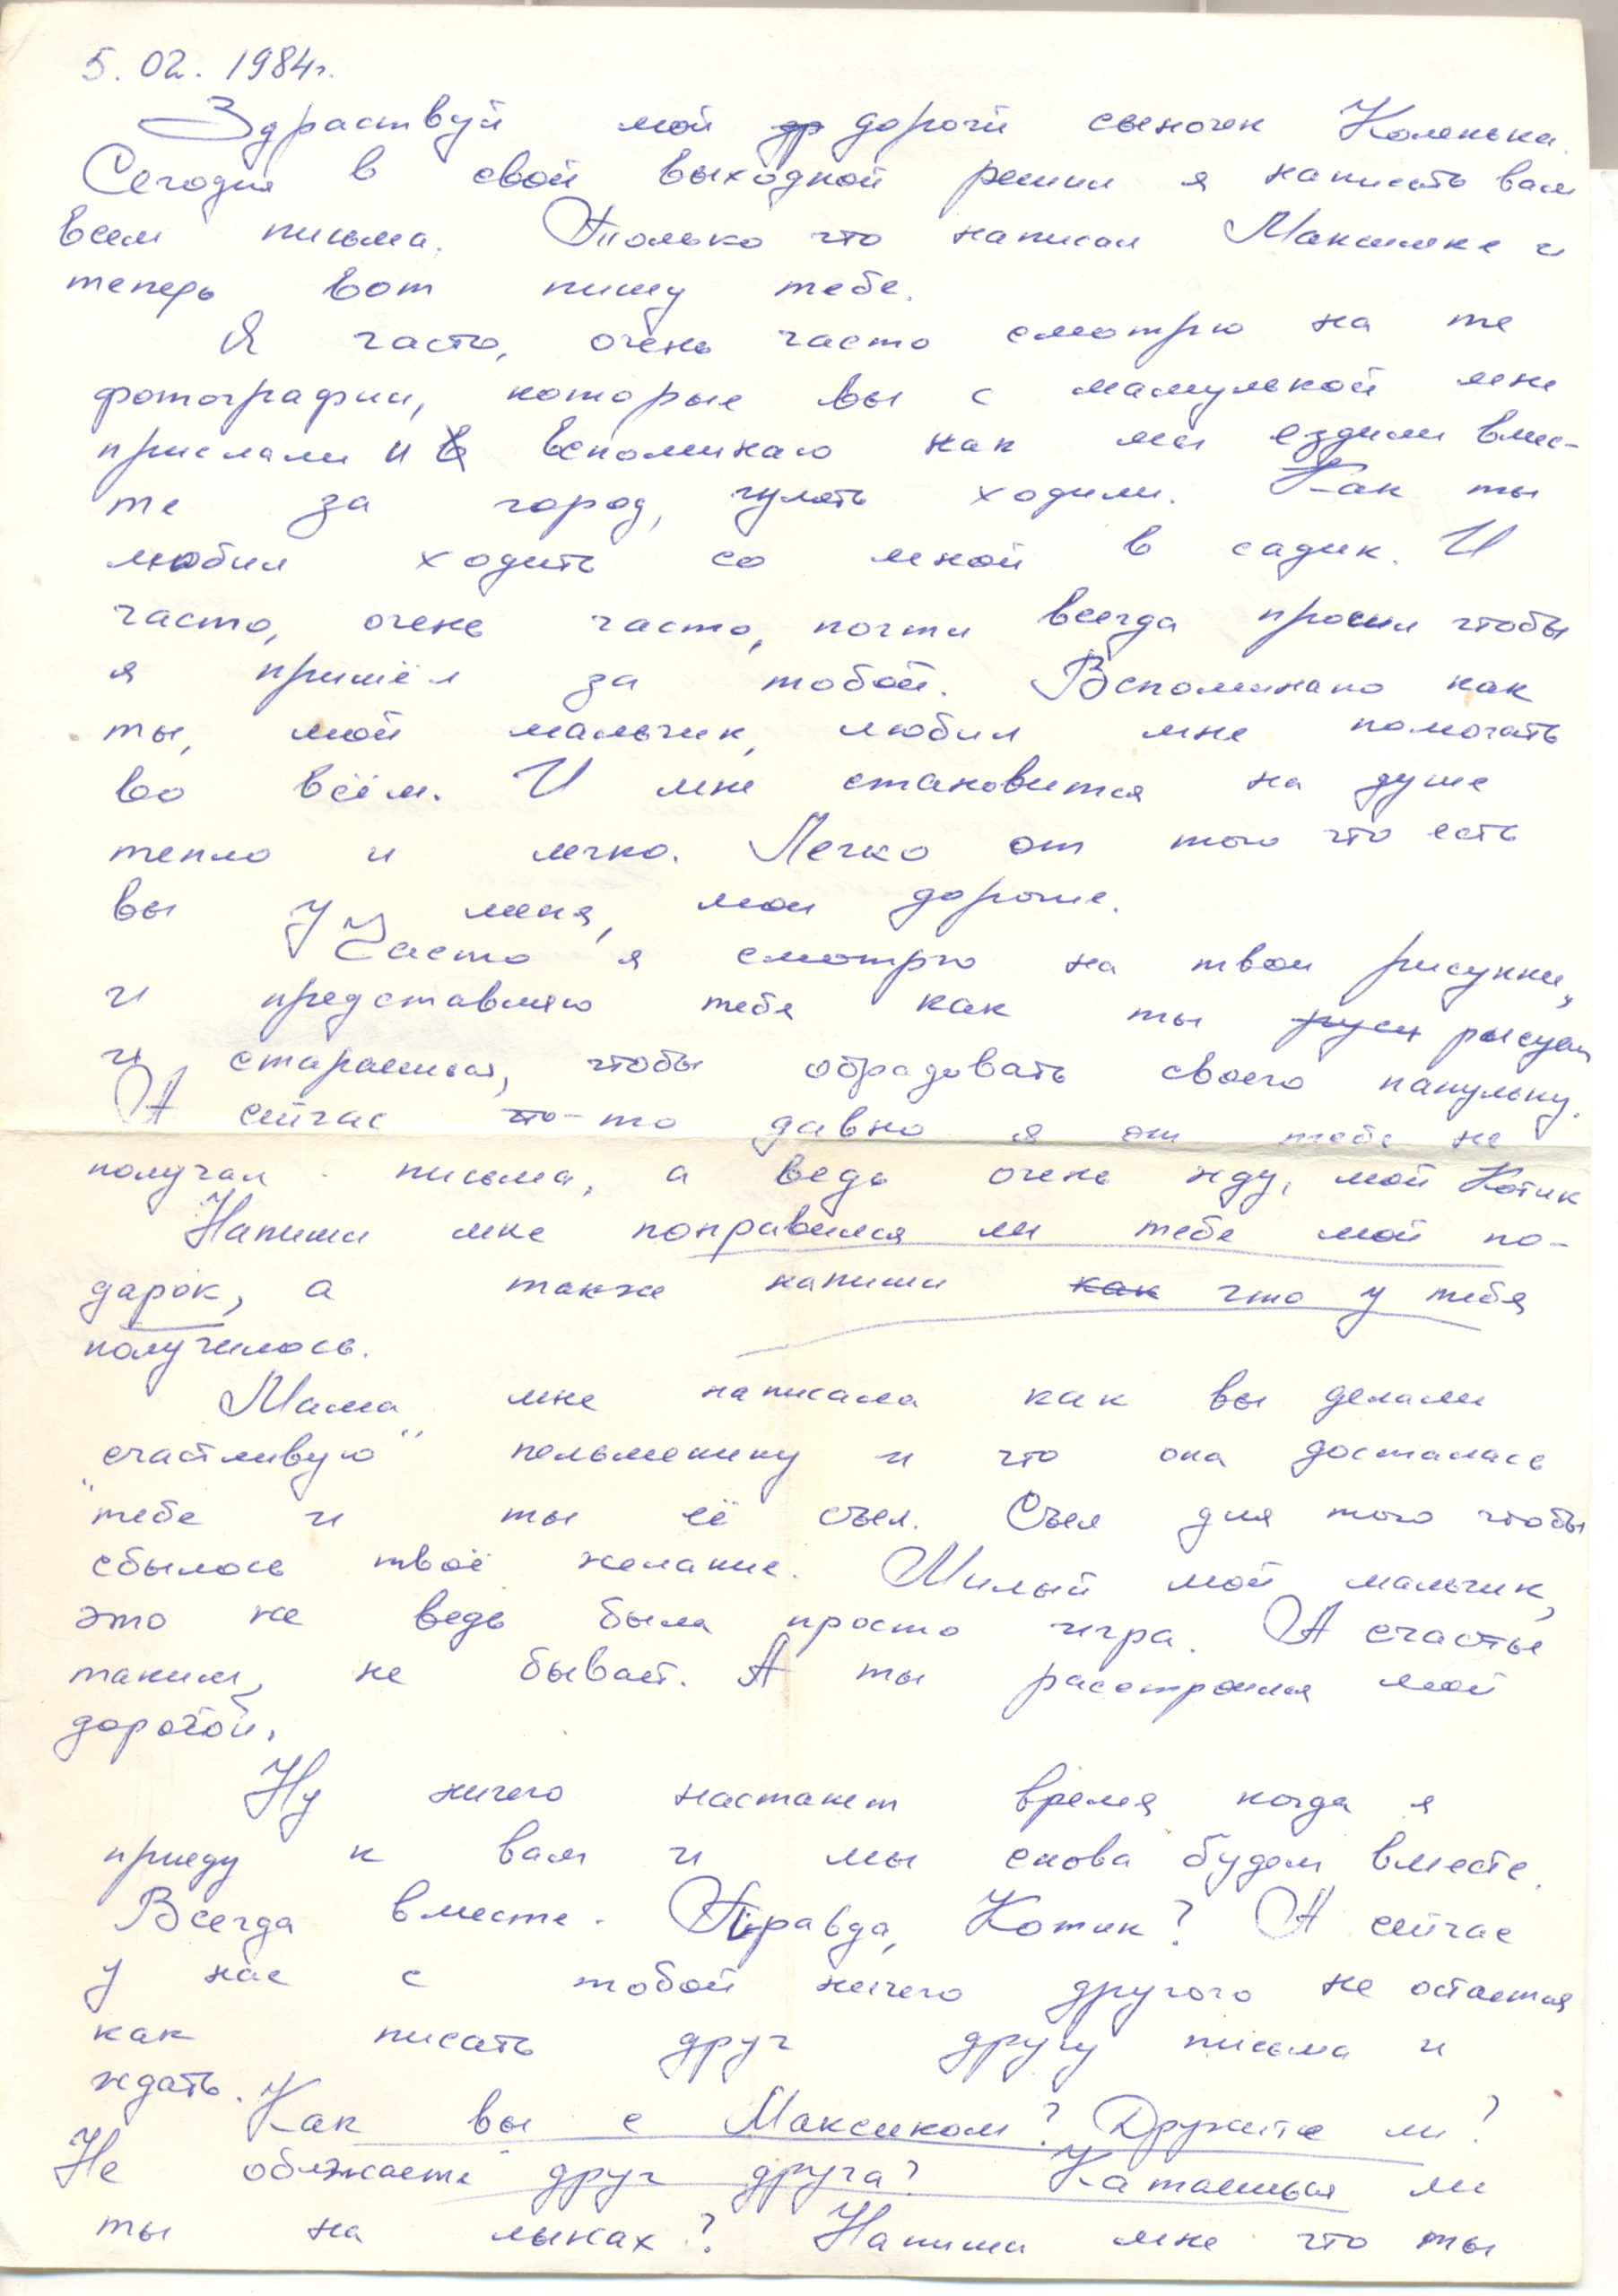 5. 02. 1984г.
Здраствуй мой др дорогй сыночек Коленька.
Сегодня в свой выходной решил я написать вам
всем письма. Только что написал Максимке и
теперь вот пишу тебе.
Я часто, очень часто смотрю на те
фотографии, которые вы с мамулькой мне
прислали и в вспоминаю как мы ездили вмес-
те за город, гулять ходили. Как ты
любил ходить со мной в садик. И
часто, очень часто, почти всегда просил чтобы
я пришёл за тобой. Вспоминаю как
ты, мой мальчик, любил мне помогать
во всём. И мне становится на душе
тепло и легко. Легко от того что есть
вы у меня, мои дорогие.
Часто я смотрю на твои рисунки,
и представляю тебя как ты руси рисуешь
и стараешься, чтобы обрадовать своего папульку.
А сейчас что-то давно я от тебя не
получал письма, а ведь очень жду, мой Котик
Напиши мне понравился ли тебе мой по-
дарок, а также напиши как что у тебя
получилось.
Мама мне написала как вы делали
"счастливую" пельменину и что она досталась
тебе и ты её съел. Съел для того чтобы
сбылось твоё желание. Милый мой мальчик,
это же ведь была просто игра. А счастье
таким, не бывает. А ты расстроился мой
дорогой.
Ну ничего настанет время когда я
приеду к вам и мы снова будем вместе.
Всегда вместе. Правда, Котик? А сейчас
у нас с тобой ничего другого не остается
как писать друг другу письма и
ждать. Как вы с Максиком? Дружите ли?
Не обижаете друг друга? Катаешься ли
ты на лыжах? Напиши мне что ты